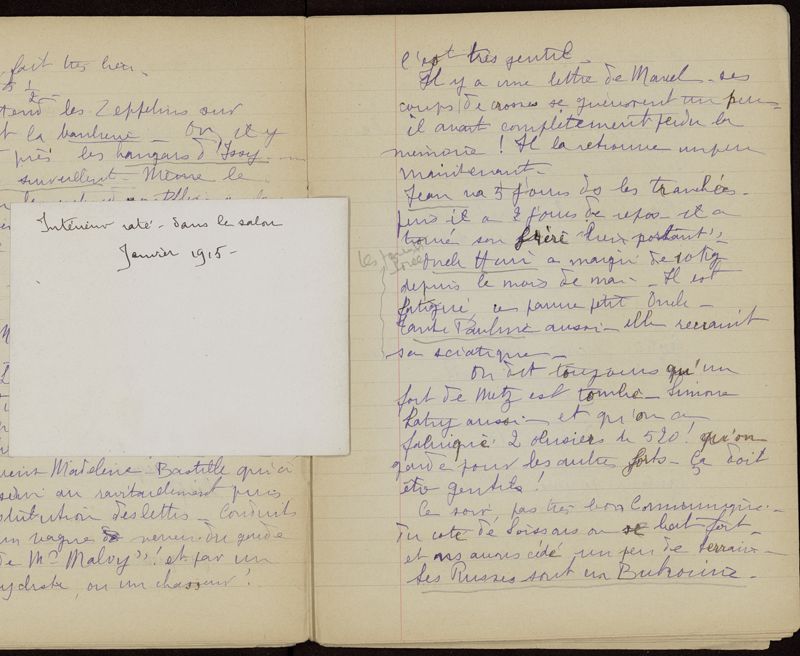 fait très bien.
5 1/2 -
les Zeppelins sur
la banlieue - On, il y
près les hangars d'Issy -
surveillent - Même le
Intérieur raté - dans le salon
Janvier 1915 -
Madeleine Bastille qui a
servi au ravitaillement puis
des lettres - Conduits
un vague neveu du garde
de Mr Malvy" ! et par un
ou un chasseur !
c'est très gentil
Il y a une lettre de Marcel - ses
coups de crosses se guérissent un peu -
il avait complètement perdu la
mémoire ! Il la retrouve un peu
maintenant -
Jean va 5 jours ds les tranchées -
puis il a 2 jours de repos - il a
trouvé son frère "bien portant" -
Oncle Henri a maigri de
depuis le mois de mai - Il est
fatigué, ce pauvre petit Oncle -
Tante Pauline aussi - elle
sa sciatique -
On dit toujours qu'un
fort de Metz est tombé - Simone
aussi - et qu'on a
fabriqué 2 obusiers de 520 ! qu'on
garde pour les autres forts - Ça doit
être gentils !
Ce soir, pas très bon Communiqué -
Du côté de Soissons on se bat fort -
et ns avons cédé un peu de terrain -
Les Russes sont en Bukovine -